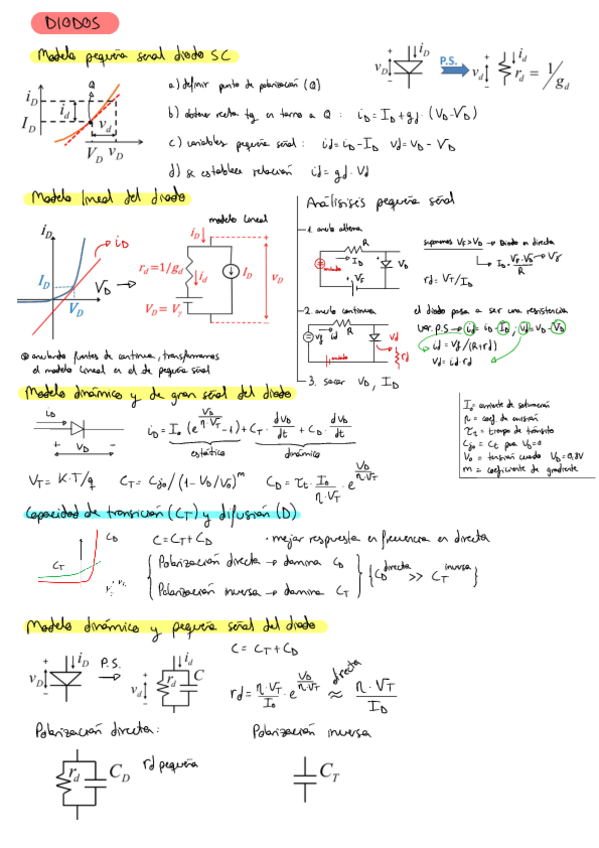 DIODOS
Modelo pequeña señal diodo SC
a) definir punto de polarización (Q)
b) obtener recta tg en torno a Q : i_D = I_D + g_d · (V_D - V_D)
c) variables pequeña señal : i_d = i_D - I_D  v_d = v_D - V_D
d) se establece relación  i_d = g_d · v_d
i_D
I_D
i_d
Q
v_d
V_D v_D
v_D
i_D
P.S.
v_d
i_d
r_d = 1/g_d
Modelo lineal del diodo
i_D
I_D
V_D
i_D
V_D →
modelo lineal
i_D
r_d = 1/g_d
i_d
I_D
v_D
V_D = V_γ
anulando fuentes de continua, transformamos
el modelo lineal en el de pequeña señal
Análisis pequeña señal
1. anulo alterna
R
I_D
V_D
V_F
anulada
suponemos V_F > V_D → Diodo en directa
I_D = (V_F - V_D)/R → V_γ
r_d = V_T / I_D
2. anulo continua
R
v_g
i_d
v_d
r_d
anulada
el diodo pasa a ser una resistencia
var. P.S → i_d = i_D - I_D ; v_d = v_D - V_D
i_d = V_g / (R + r_d)
v_d = i_d · r_d
3. sacar V_D, I_D
Modelo dinámico y de gran señal del diodo
i_D
+ V_D -
i_D = I_0 (e^(V_D/η·V_T) - 1) + C_T · dV_D/dt + C_D · dV_D/dt
estática
dinámica
V_T = K·T/q  C_T = C_jo / (1 - V_D/V_0)^m  C_D = τ_t · I_0/(η·V_T) · e^(V_D/η·V_T)
I_0 = corriente de saturación
η = coef. de emisión
τ_t = tiempo de tránsito
C_jo = C_t para V_D = 0
V_0 = tensión cuando V_D = 0,8V
m = coeficiente de gradiente
Capacidad de transición (CT) y difusión (D)
C_D
C_T
C = C_T + C_D
· mejor respuesta en frecuencia en directa
Polarización directa → domina C_D
Polarización inversa → domina C_T
{ C_D^directa >> C_T^inversa }
Modelo dinámico y pequeña señal del diodo
v_D
i_D
P.S.
v_d
i_d
r_d
C
C = C_T + C_D
r_d = η·V_T/I_0 · e^(V_D/η·V_T) ≈ η·V_T/I_D
directa
Polarización directa:
r_d
C_D
rd pequeña
Polarización inversa
C_T